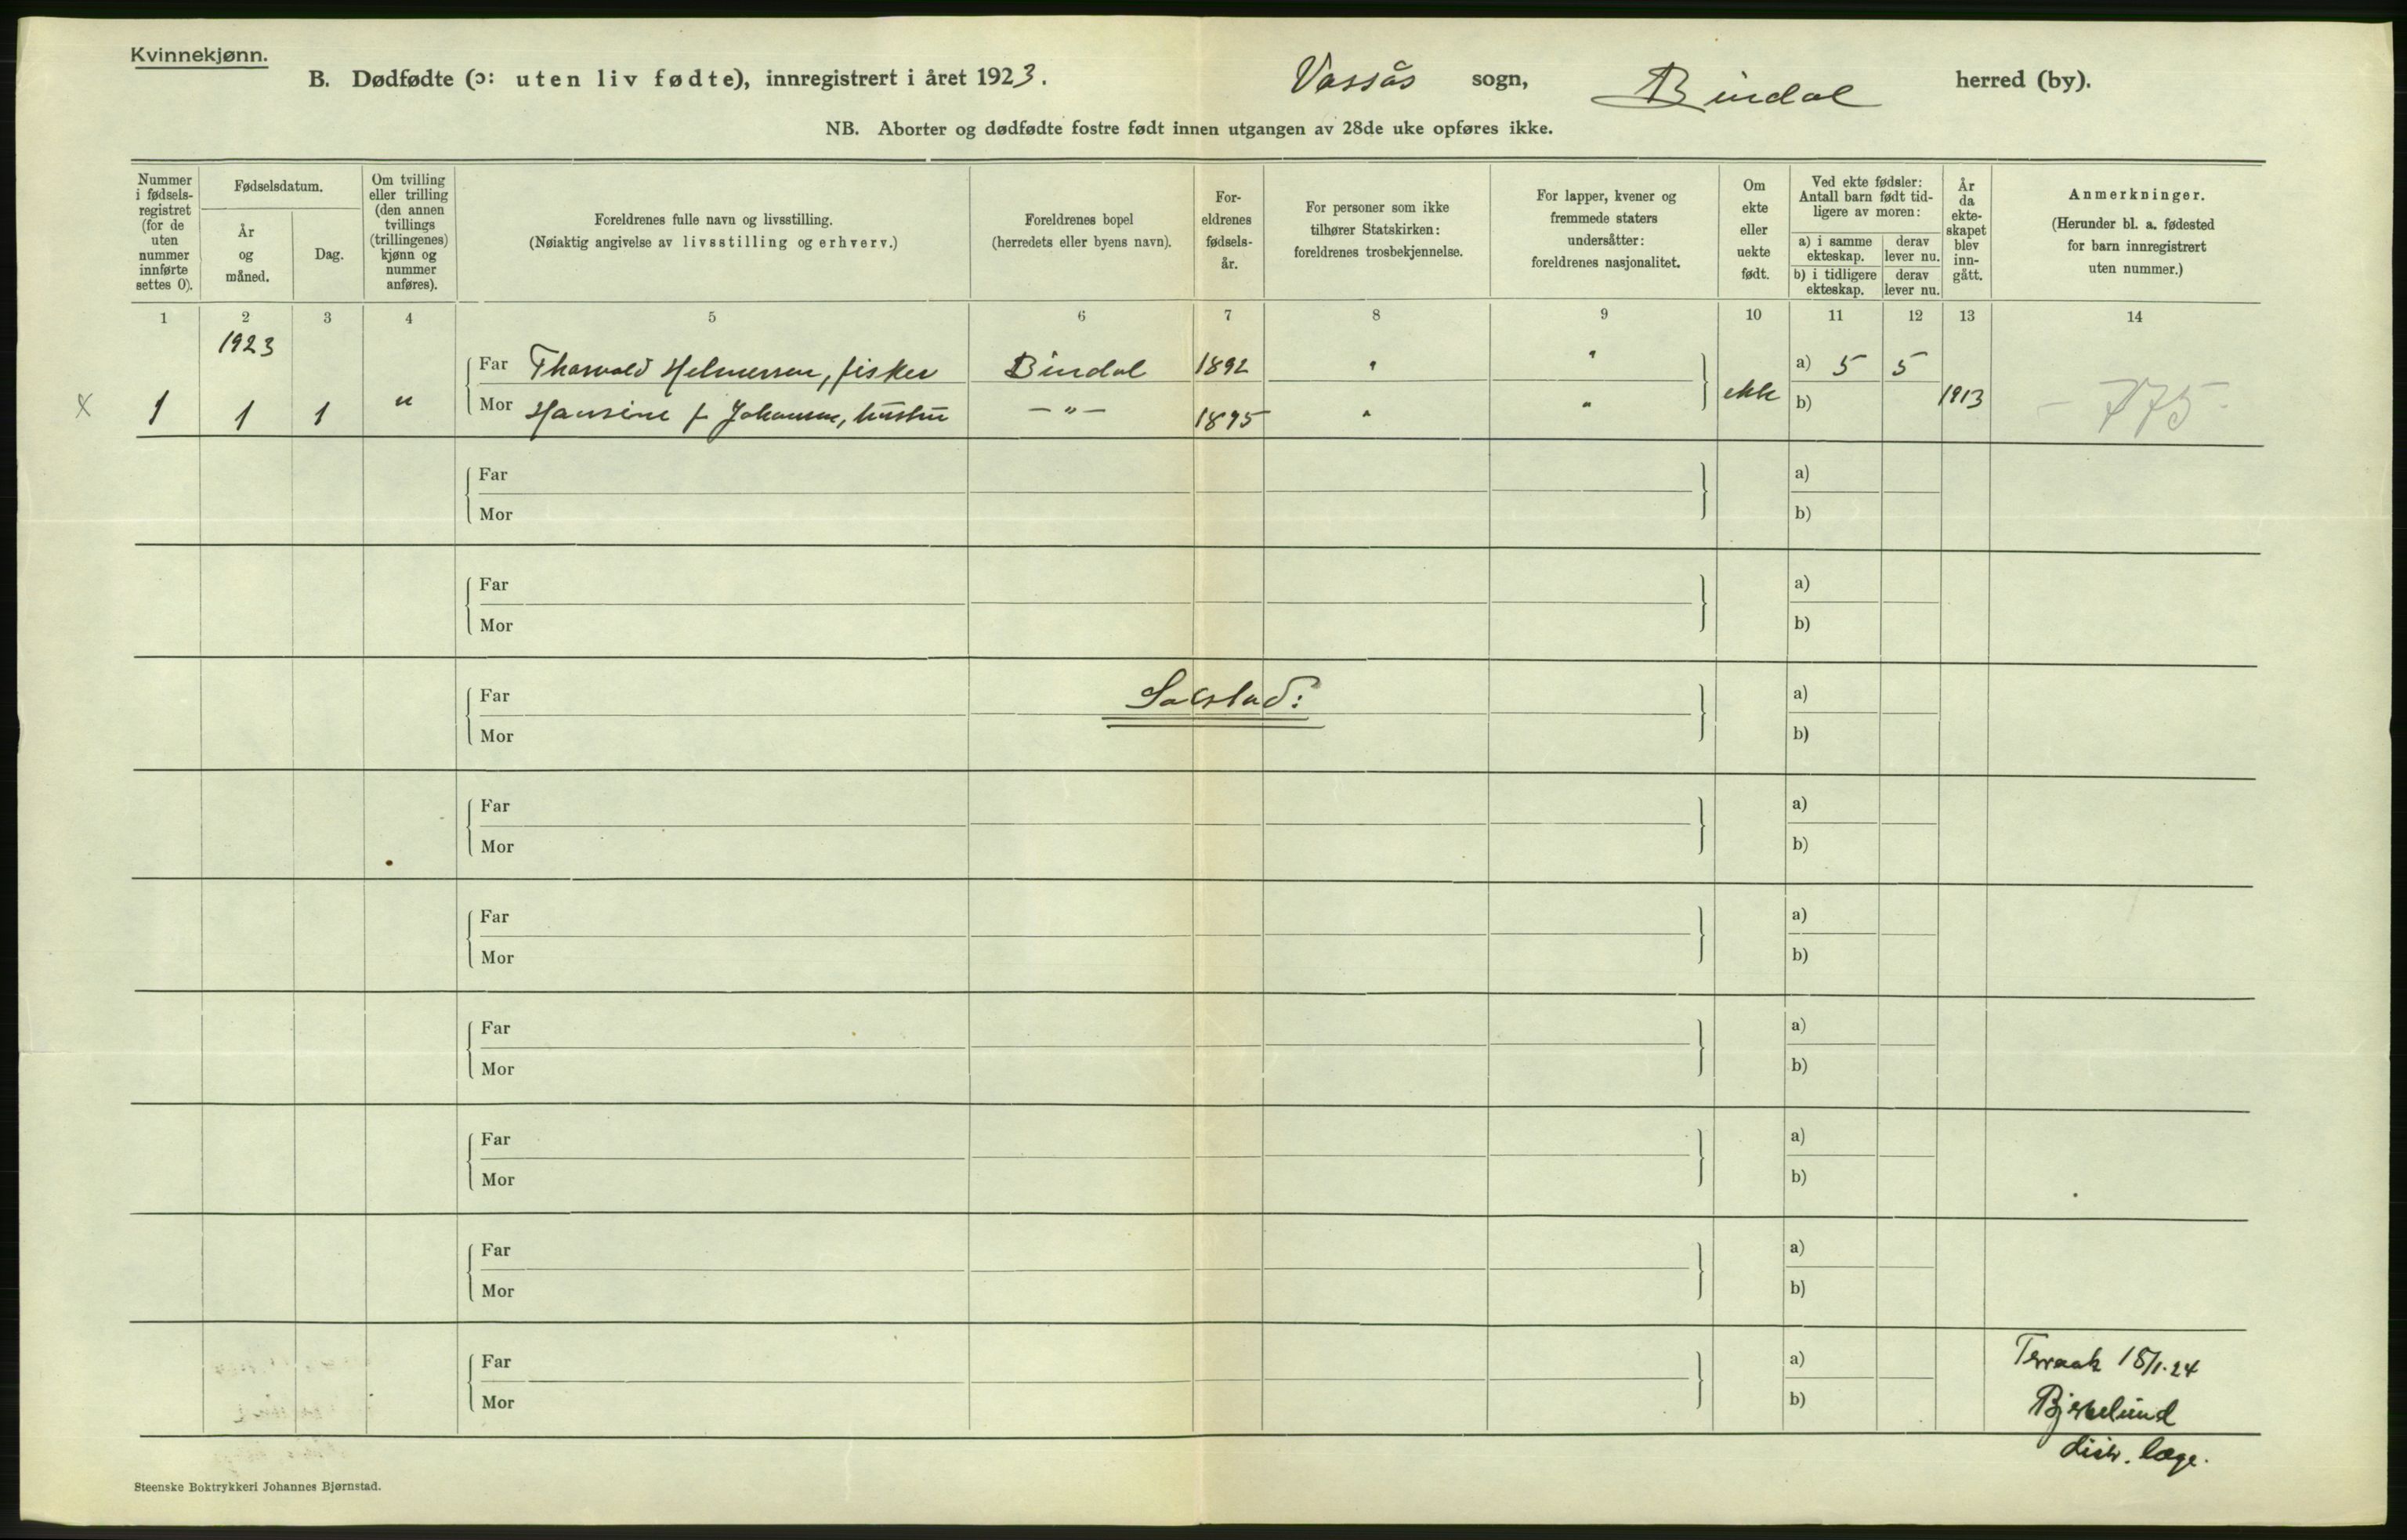 Kvinnekjønn.
B. Dødfødte (ɔ: uten liv fødte), innregistrert i året 1923. Vassås sogn, Bindal herred (by).
NB. Aborter og dødfødte fostre født innen utgangen av 28de uke opføres ikke.
Nummer i fødsels-registret (for de uten nummer innførte settes 0).
Fødselsdatum.
År og måned.
Dag.
Om tvilling eller trilling (den annen tvillings (trillingenes) kjønn og nummer anføres).
Foreldrenes fulle navn og livsstilling.
(Nøiaktig angivelse av livsstilling og erhverv.)
Foreldrenes bopel
(herredets eller byens navn).
For-eldrenes fødsels-år.
For personer som ikke tilhører Statskirken: foreldrenes trosbekjennelse.
For lapper, kvener og fremmede staters undersåtter: foreldrenes nasjonalitet.
Om ekte eller uekte født.
Ved ekte fødsler: Antall barn født tid-ligere av moren:
a) i samme ekteskap.
derav lever nu.
b) i tidligere ekteskap.
derav lever nu.
År da ekte-skapet blev inn-gått.
Anmerkninger.
(Herunder bl. a. fødested for barn innregistrert uten nummer.)
1 2 3 4 5 6 7 8 9 10 11 12 13 14
1923
Far Thorvald Helmersen, fisker Bindal 1892 " " a) 5 5
x 1 1 1 " Mor Hansine f. Johansen, hustru — " — 1895 " " ekte b) 1913 - 775 -
Far a)
Mor b)
Far a)
Mor b)
Far Solstad: a)
Mor b)
Far a)
Mor b)
Far a)
Mor b)
Far a)
Mor b)
Far a)
Mor b)
Far a)
Mor b)
Far a) Terraak 18/1.24
Mor b) Bjerkelund
distr. læge.
Steenske Boktrykkeri Johannes Bjørnstad.